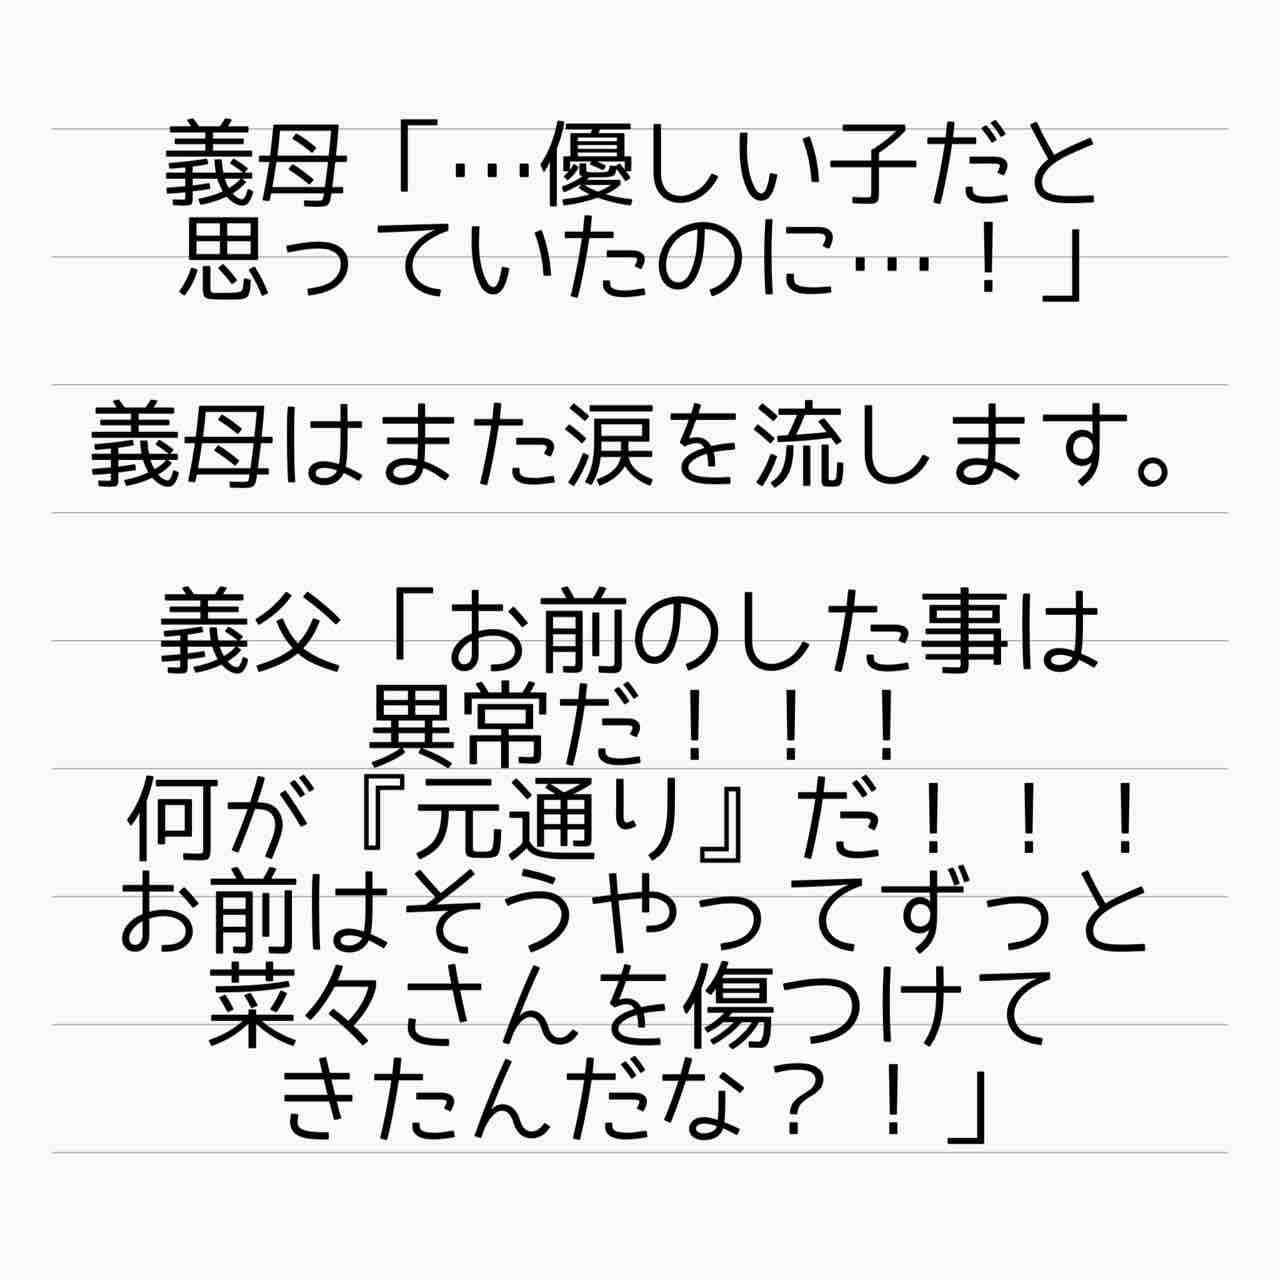 義母「…優しい子だと
思っていたのに…！」
義母はまた涙を流します。
義父「お前のした事は
異常だ！！！
何が『元通り』だ！！！
お前はそうやってずっと
菜々さんを傷つけて
きたんだな？！」